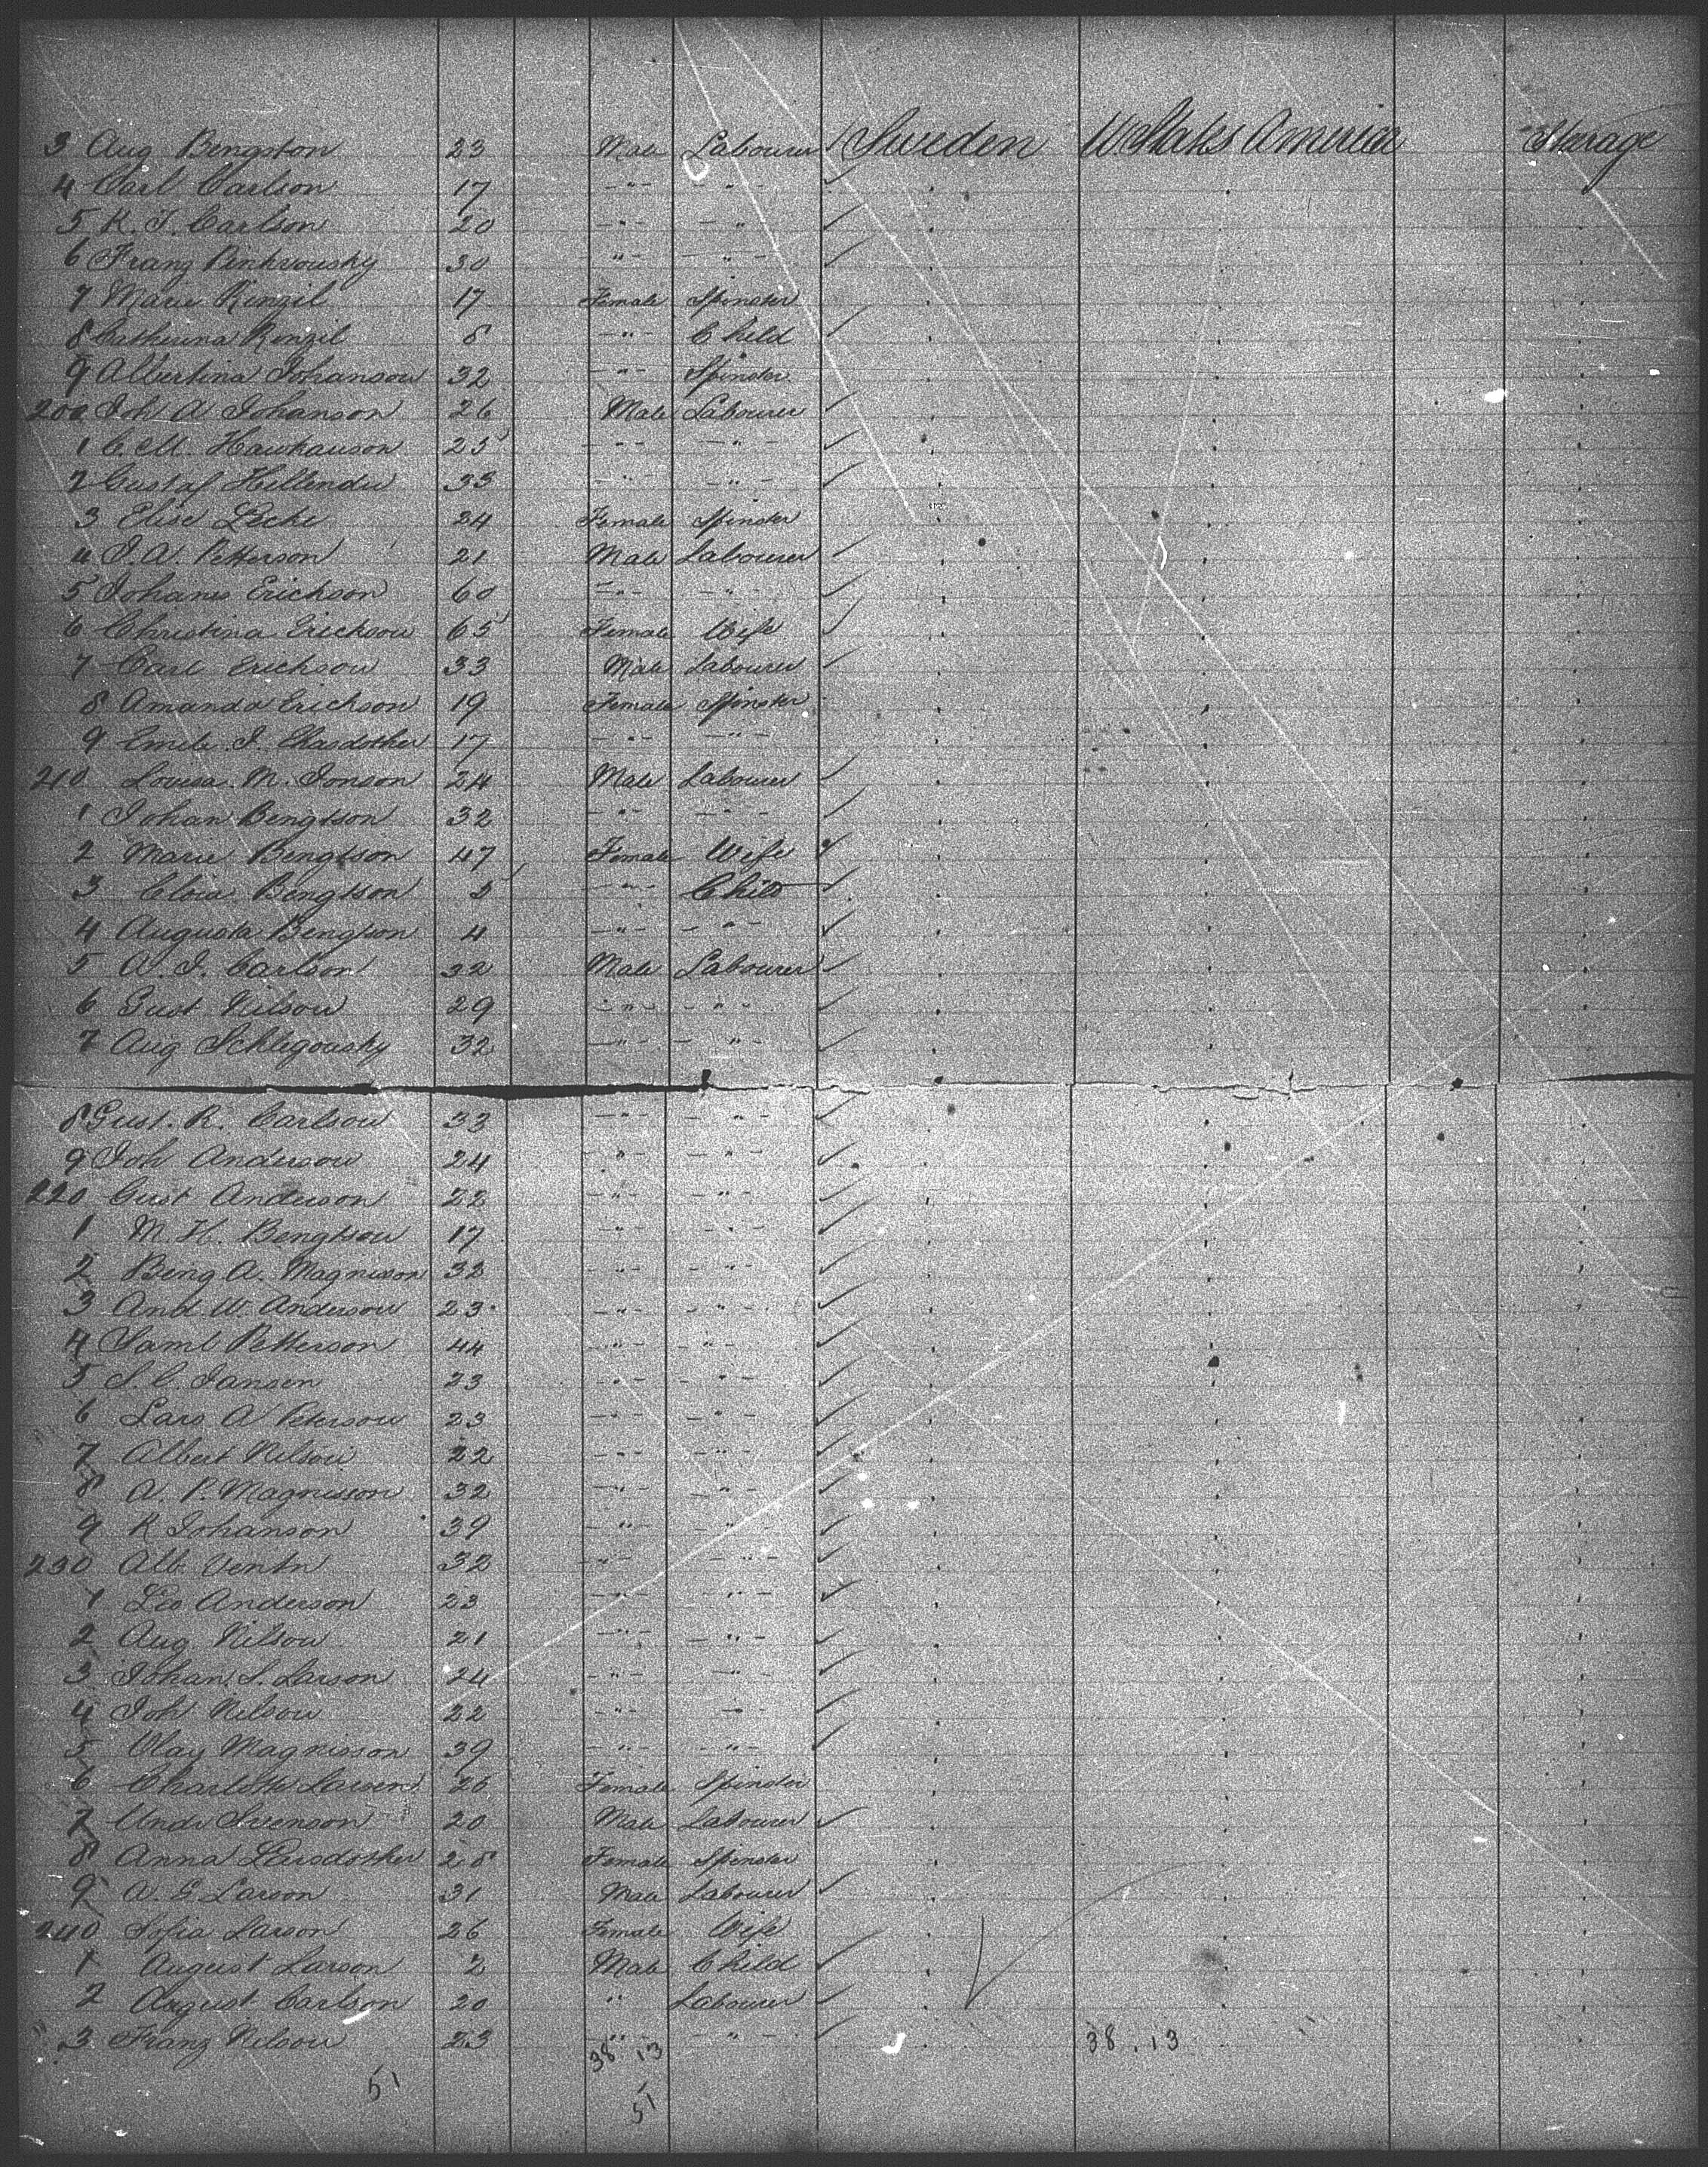 3 Aug Bengston 23 Male Labourer Sweden U States America Starage
4 Carl Carlson 17 -"- -"-
5 K. J. Carlson 20 -"- -"-
6 Franz 30 -"- -"-
7 Marie Kinzil 17 Female Spinster
8 Catherina Kinzil 8 -"- Child
9 Albertina Johanson 32 -"- Spinster
200 Joh A Johanson 26 Male Labourer
1 C. M. Hawkanson 25 -"- -"-
2 Gustaf Hellender 33 -"- -"-
3 Elise Leche 24 Female Spinster
4 J. A. Petterson 21 Male Labourer
5 Johans Erickson 60 -"- -"-
6 Christina Erickson 65 Female Wife
7 Carl Erickson 33 Male Labourer
8 Amanda Erickson 19 Female Spinster
9 Emele J. 17 -"- -"-
210 Lovisa M. Jonson 24 Male Labourer
1 Johan Bengtson 32 -"- -"-
2 Marie Bengtson 47 Female Wife
3 Bengtson 5 -"- Child
4 Augusta Bengtson 4 -"- -"-
5 A. J. Carlson 32 Male Labourer
6 Gust Nilson 29 -"- -"-
7 Aug Schligousky 32 -"- -"-
8 Gust. R. Carlson 33 -"- -"-
9 Joh Anderson 24 -"- -"-
220 Gust Anderson 22 -"- -"-
1 M. H. Bengtson 17 -"- -"-
2 Beng A. Magnisson 32 -"- -"-
3 And. W. Anderson 23 -"- -"-
4 Saml Petterson 44 -"- -"-
5 S. C. Jansen 23 -"- -"-
6 Lars A Peterson 23 -"- -"-
7 Albert Nilson 22 -"- -"-
8 A. P. Magnisson 32 -"- -"-
9 K Johanson 39 -"- -"-
230 Alb. 32 -"- -"-
1 Leo Anderson 23 -"- -"-
2 Aug Nilson 21 -"- -"-
3 Johan S. Larson 24 -"- -"-
4 Joh Nilson 22 -"- -"-
5 Olay Magnisson 39 -"- -"-
6 Charlotte Larsen 26 Female Spinster
7 Andr Svenson 20 Male Labourer
8 Anna Larsdother 28 Female Spinster
9 A. G. Larson 31 Male Labourer
240 Sofia Larson 26 Female Wife
1 August Larson 2 Male Child
2 August Carlson 20 " Labourer
3 Franz Nilson 23 -"- -"-
38 13 38.13
51 51